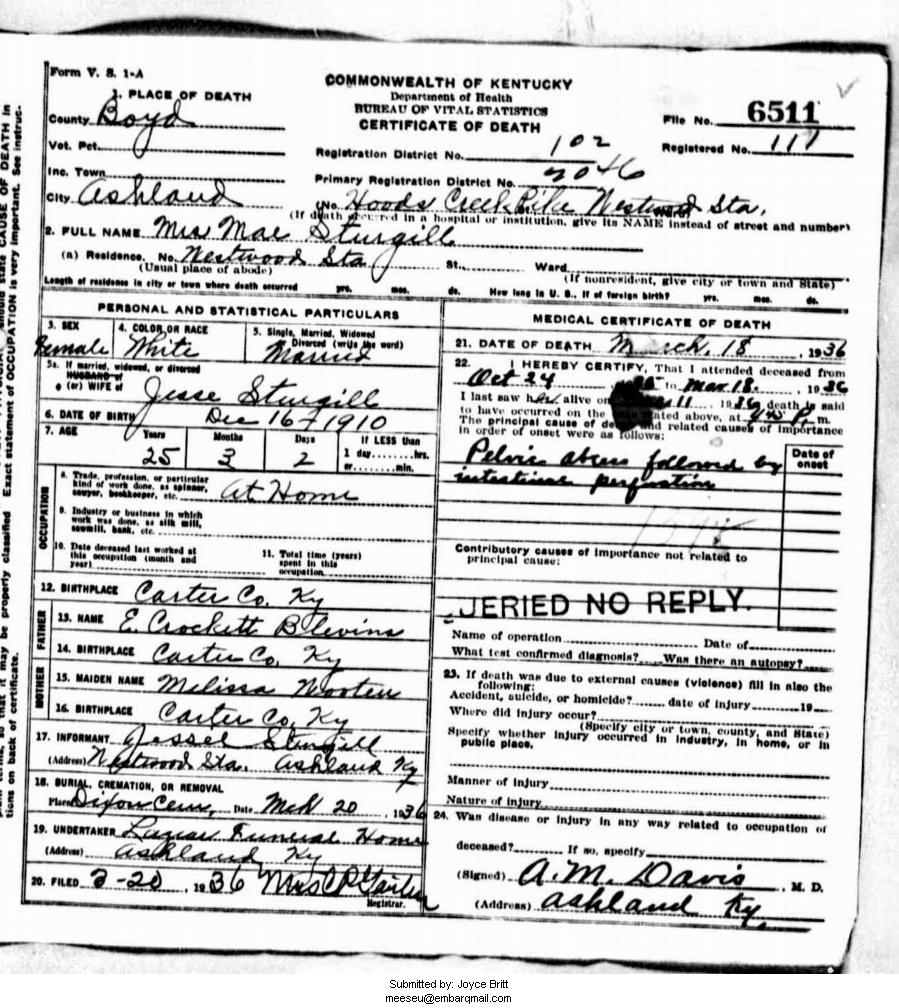 Form V. S. 1-A
COMMONWEALTH OF KENTUCKY
Department of Health
BUREAU OF VITAL STATISTICS
CERTIFICATE OF DEATH
1. PLACE OF DEATH
County Boyd
Vot. Pct.
Inc. Town
City Ashland
File No. 6511
Registered No. 111
Registration District No. 102
Primary Registration District No. 2046
(No. Hoods Creek Pike Westwood Sta.
(If death occurred in a hospital or institution, give its NAME instead of street and number)
2. FULL NAME Mrs Mae Sturgill
(a) Residence. No. Westwood Sta St., Ward
(Usual place of abode) (If nonresident, give city or town and State)
Length of residence in city or town where death occurred yrs. mos. ds. How long in U. S., if of foreign birth? yrs. mos. ds.
PERSONAL AND STATISTICAL PARTICULARS
3. SEX Female
4. COLOR OR RACE White
5. Single, Married, Widowed or Divorced (write the word) Married
5a. If married, widowed, or divorced
HUSBAND of
(or) WIFE of Jesse Sturgill
6. DATE OF BIRTH Dec 16 1910
7. AGE Years 25 Months 3 Days 2 If LESS than 1 day........hrs. or........min.
OCCUPATION
8. Trade, profession, or particular kind of work done, as spinner, sawyer, bookkeeper, etc. At Home
9. Industry or business in which work was done, as silk mill, sawmill, bank, etc.
10. Date deceased last worked at this occupation (month and year)
11. Total time (years) spent in this occupation
12. BIRTHPLACE Carter Co. Ky
FATHER
13. NAME E. Crockett Blevins
14. BIRTHPLACE Carter Co. Ky
MOTHER
15. MAIDEN NAME Melissa Wooten
16. BIRTHPLACE Carter Co. Ky
17. INFORMANT Jessel Sturgill
(Address) Westwood Sta. Ashland Ky
18. BURIAL, CREMATION, OR REMOVAL
Place Dixon Cem, Date Mch 20, 1936
19. UNDERTAKER Funeral Home
(Address) Ashland Ky
20. FILED 3-20 1936 Mrs C R
Registrar.
MEDICAL CERTIFICATE OF DEATH
21. DATE OF DEATH March, 18, 1936
22. I HEREBY CERTIFY, That I attended deceased from
Oct 24 to Mar 18. , 1936
I last saw her alive on 11 1936, death is said
to have occurred on the date stated above, at P. m.
The principal cause of death and related causes of importance
in order of onset were as follows:
Date of onset
Pelvis abcess followed by
intestinal perforation
Contributory causes of importance not related to
principal cause:
QUERIED NO REPLY.
Name of operation Date of
What test confirmed diagnosis? Was there an autopsy?
23. If death was due to external causes (violence) fill in also the
following:
Accident, suicide, or homicide? date of injury 19
Where did injury occur?
(Specify city or town, county, and State)
Specify whether injury occurred in industry, in home, or in
public place.
Manner of injury
Nature of injury
24. Was disease or injury in any way related to occupation of
deceased? If so, specify
(Signed) A. M. Davis, M. D.
(Address) Ashland Ky.
should state CAUSE OF DEATH in
terms, so that it may be properly classified. Exact statement of OCCUPATION is very important. See instruc-
tions on back of certificate.
Submitted by: Joyce Britt
meeseu@embarqmail.com